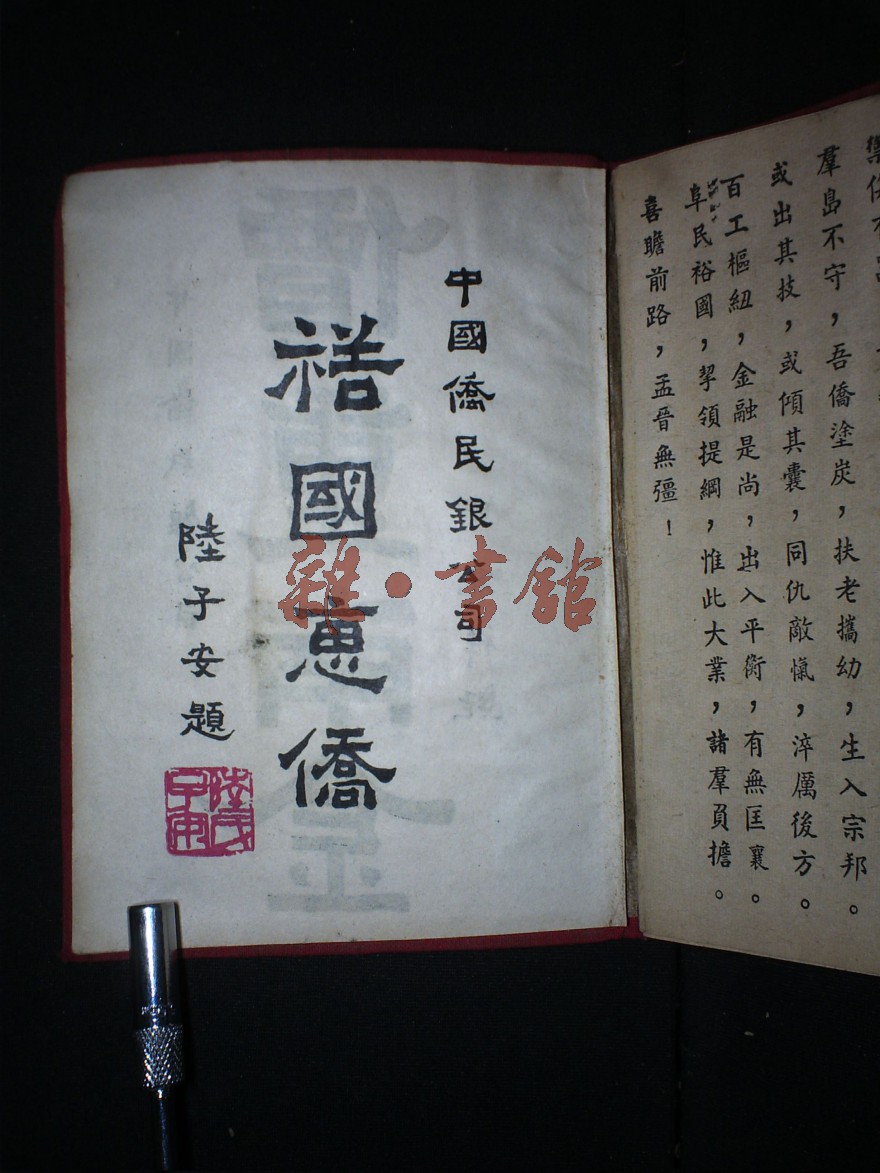 羣島不守，吾僑塗炭，扶老攜幼，生入宗邦。
或出其技，或傾其囊，同仇敵愾，淬厲後方。
百工樞紐，金融是尚，出入平衡，有無匡襄。
阜民裕國，挈領提綱，惟此大業，諸羣負擔。
喜瞻前路，孟晉無疆！
中國僑民銀公司
裕國惠僑
陸子安題
陸氏子安
雜·書館